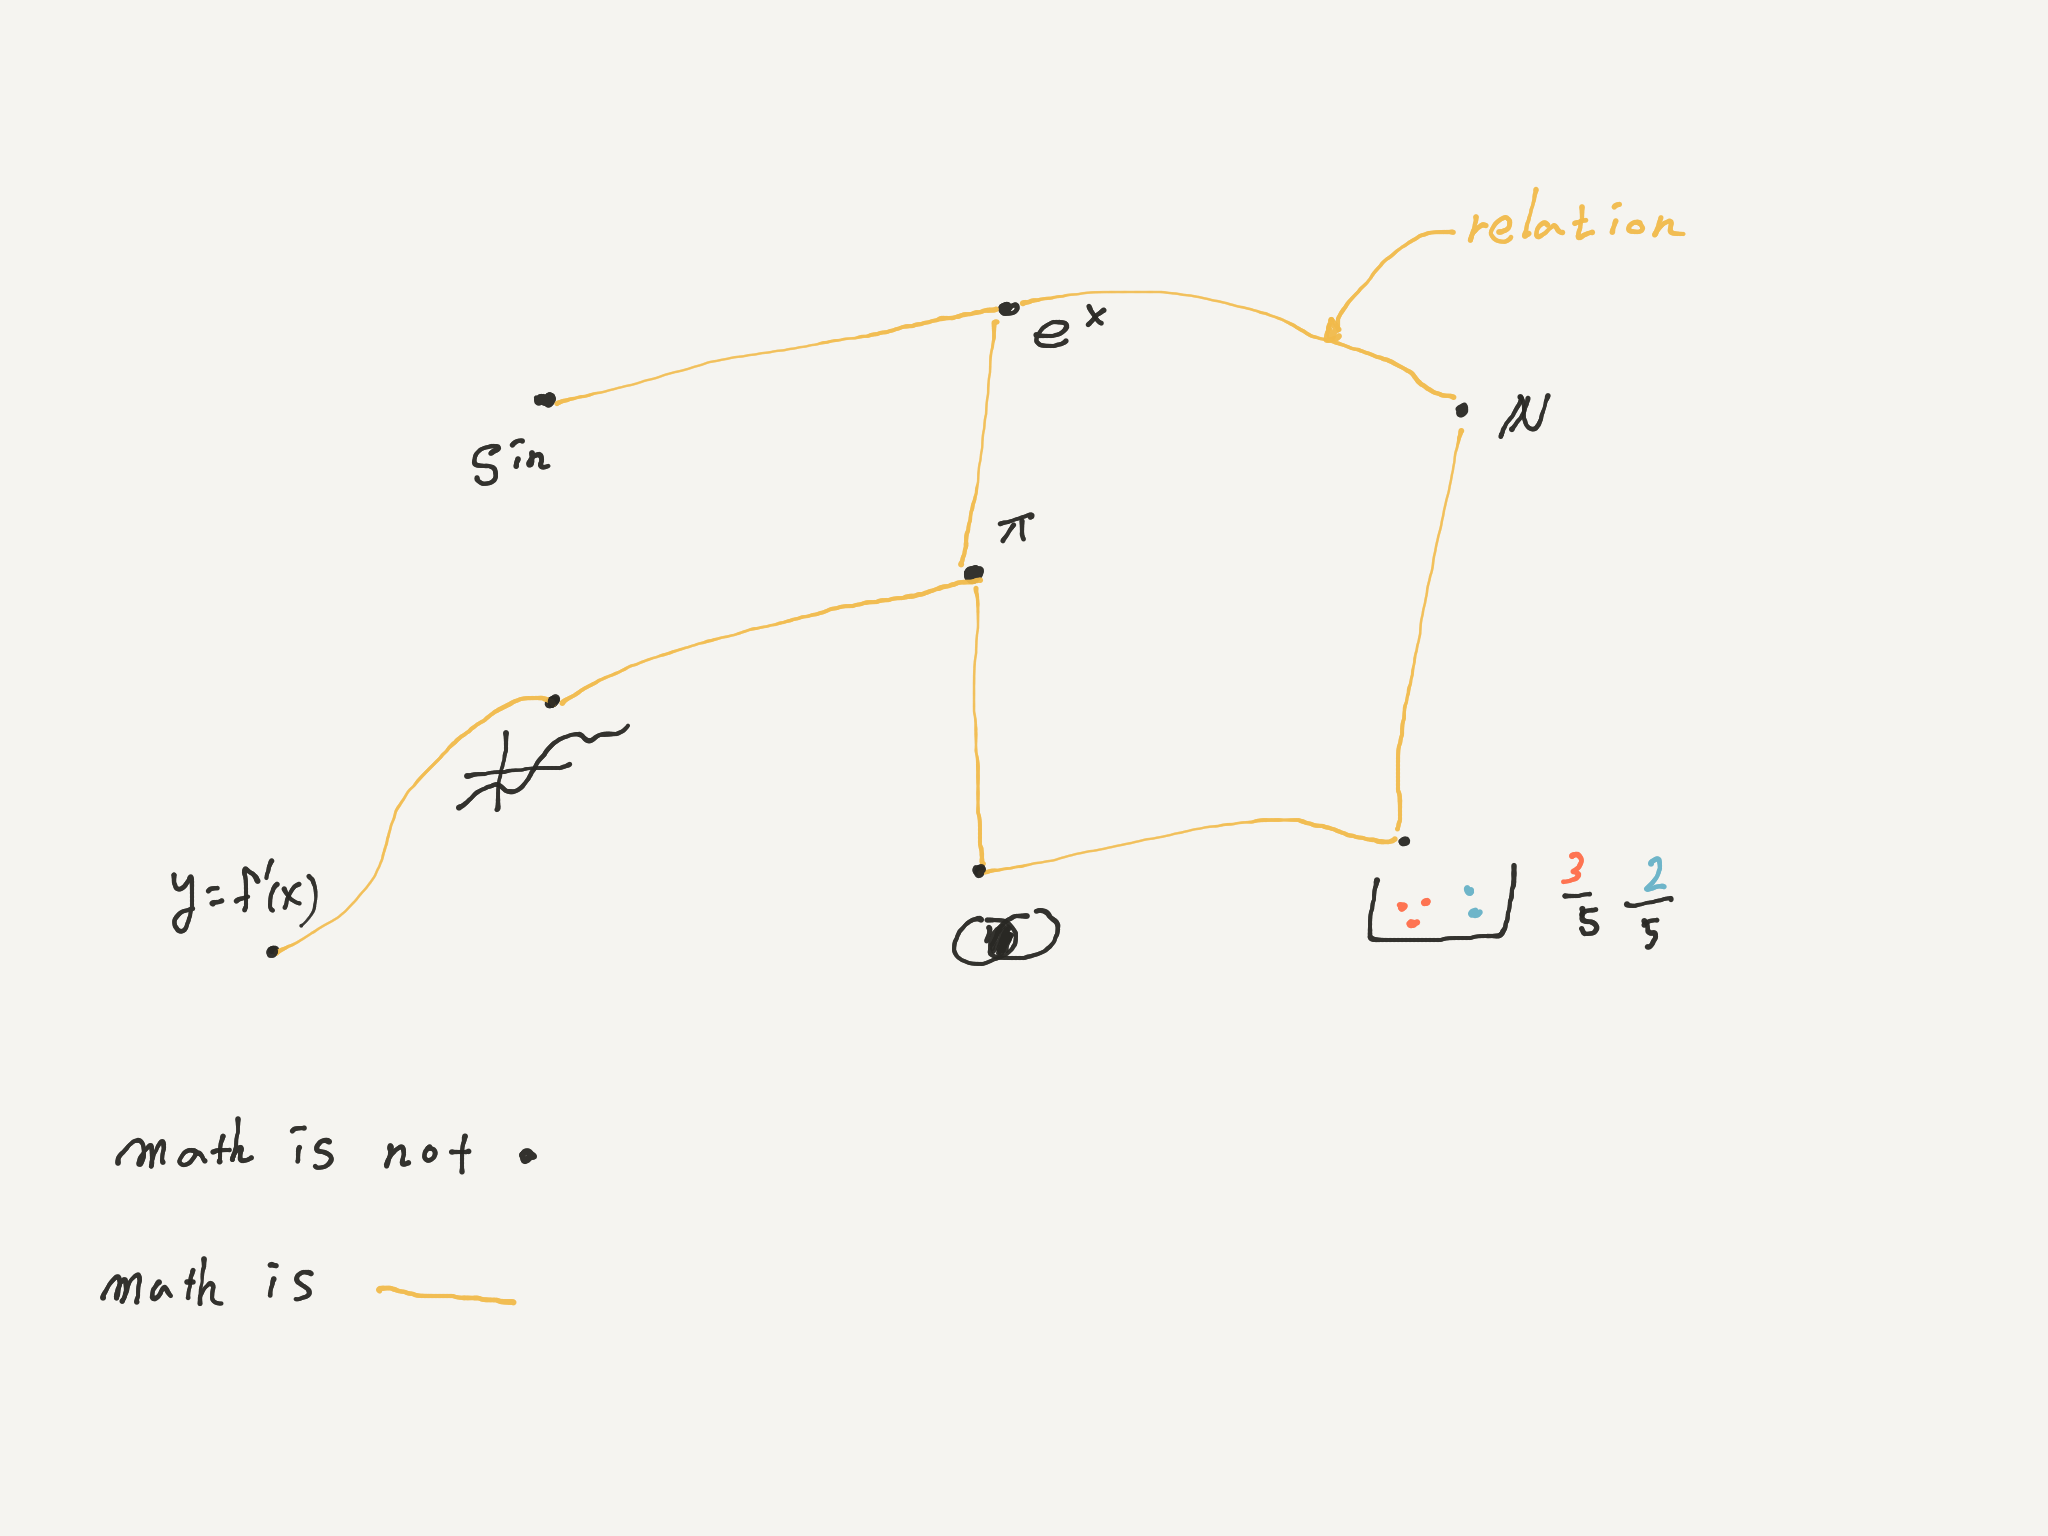 relation
e^x
sin
N
π
y=f'(x)
3/5 2/5
math is not
math is